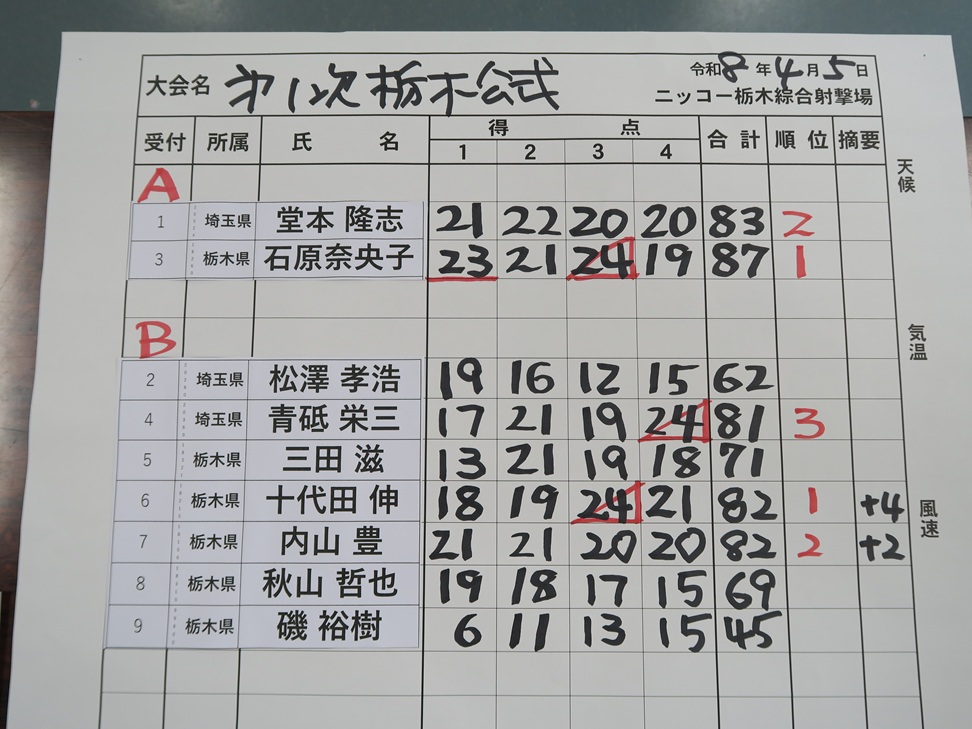 大会名 第1次栃木公式 令和8年4月5日
ニッコー栃木綜合射撃場
受付 所属 氏名 得点 合計 順位 摘要
1 2 3 4
天候
A
1 埼玉県 堂本 隆志 21 22 20 20 83 2
3 栃木県 石原奈央子 23 21 24 19 87 1
気温
B
2 埼玉県 松澤 孝浩 19 16 12 15 62
4 埼玉県 青砥 栄三 17 21 19 24 81 3
5 栃木県 三田 滋 13 21 19 18 71
6 栃木県 十代田 伸 18 19 24 21 82 1 +4
風速
7 栃木県 内山 豊 21 21 20 20 82 2 +2
8 栃木県 秋山 哲也 19 18 17 15 69
9 栃木県 磯 裕樹 6 11 13 15 45